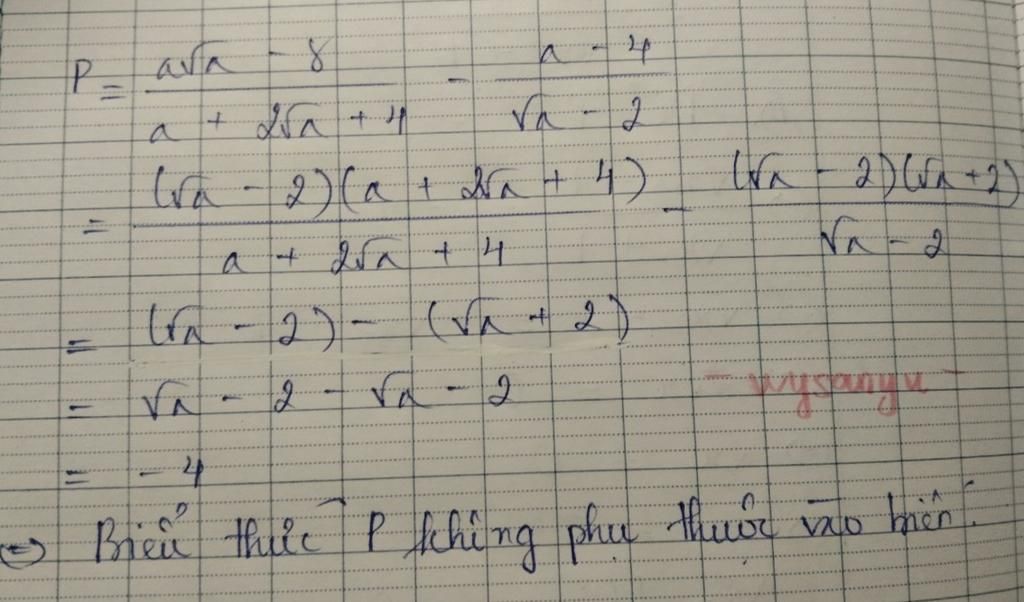 P = (a√a - 8)/(a + 2√a + 4) - (a - 4)/(√a - 2)
= ((√a - 2)(a + 2√a + 4))/(a + 2√a + 4) - ((√a - 2)(√a + 2))/(√a - 2)
= (√a - 2) - (√a + 2)
= √a - 2 - √a - 2
- wysanyu -
= - 4
⇔ Biểu thức P không phụ thuộc vào biến.